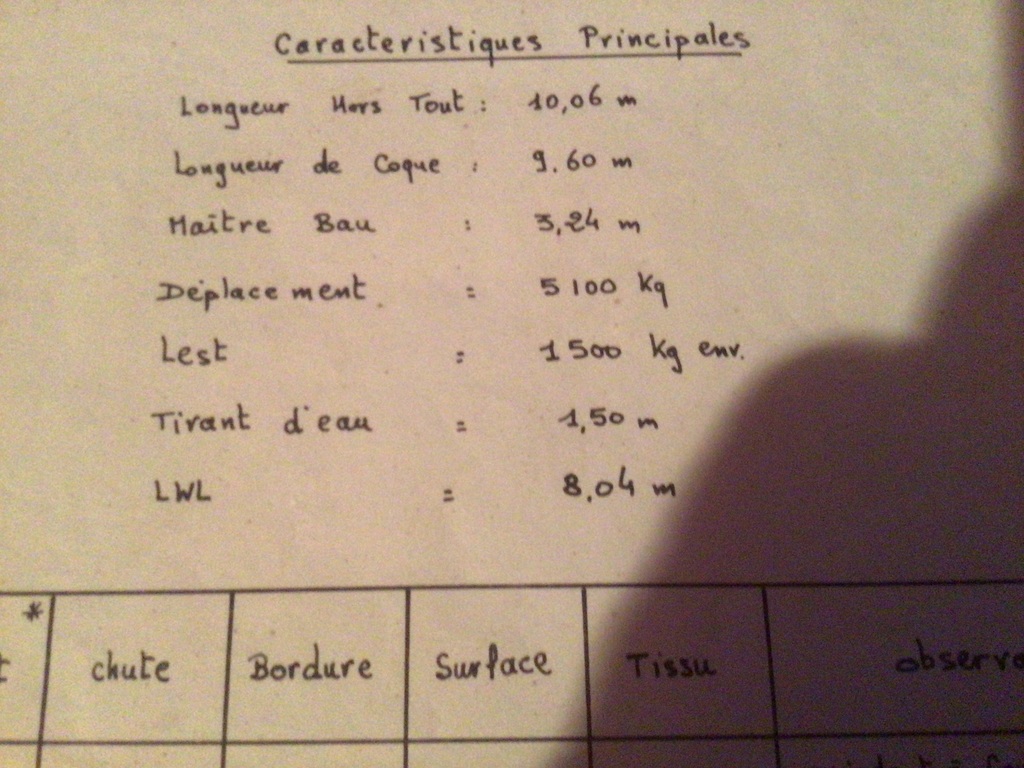 Caracteristiques Principales
Longueur Hors Tout : 10,06 m
Longueur de Coque : 9.60 m
Maître Bau : 3,24 m
Déplacement = 5100 Kg
Lest = 1500 Kg env.
Tirant d'eau = 1,50 m
LWL = 8,04 m
* chute Bordure Surface Tissu observa